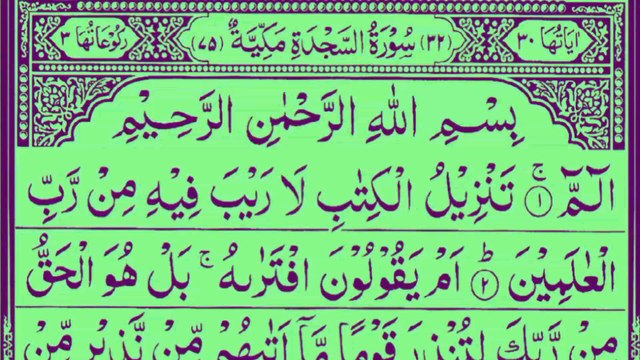 اٰيَاتُهَا ٣٠ (٣٢) سُوْرَةُ السَّجْدَةِ مَكِّيَّةٌ (٧٥) رُكُوْعَاتُهَا ٣
بِسْمِ اللّٰهِ الرَّحْمٰنِ الرَّحِيْمِ
الٓمّٓ ۚ﴿١﴾ تَنْزِيْلُ الْكِتٰبِ لَا رَيْبَ فِيْهِ مِنْ رَّبِّ
الْعٰلَمِيْنَ ؕ﴿٢﴾ اَمْ يَقُوْلُوْنَ افْتَرٰىهُ ۚ بَلْ هُوَ الْحَقُّ
مِنْ رَّبِّكَ لِتُنْذِرَ قَوْمًا مَّاۤ اَتٰىهُمْ مِّنْ نَّذِيْرٍ مِّنْ